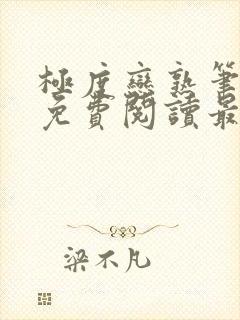 極度戀熟筆
免費閱讀最
梁不凡